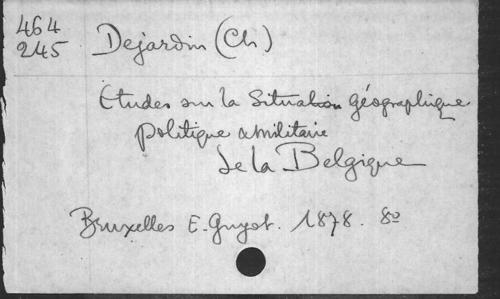 464
245
Dejardin (Ch)
Etudes sur la Situation géographique
politique & militaire
de la Belgique
Bruxelles E. Guyot. 1878. 8º